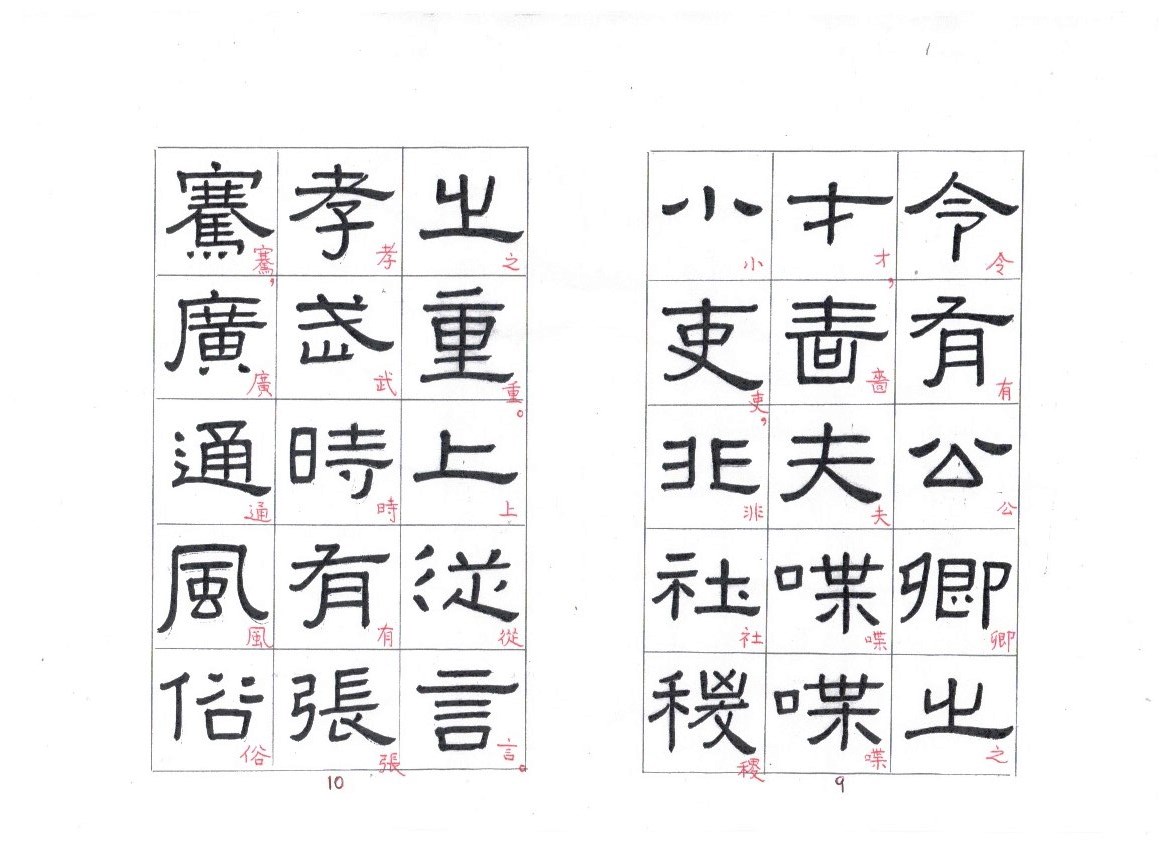 令有公卿之
令有公卿之
才嗇夫喋喋
才，嗇夫喋喋
小吏非社稷
小吏，非社稷
9
之重上從言
之重。上從言。
孝武時有張
孝武時有張
騫廣通風俗
騫，廣通風俗
10